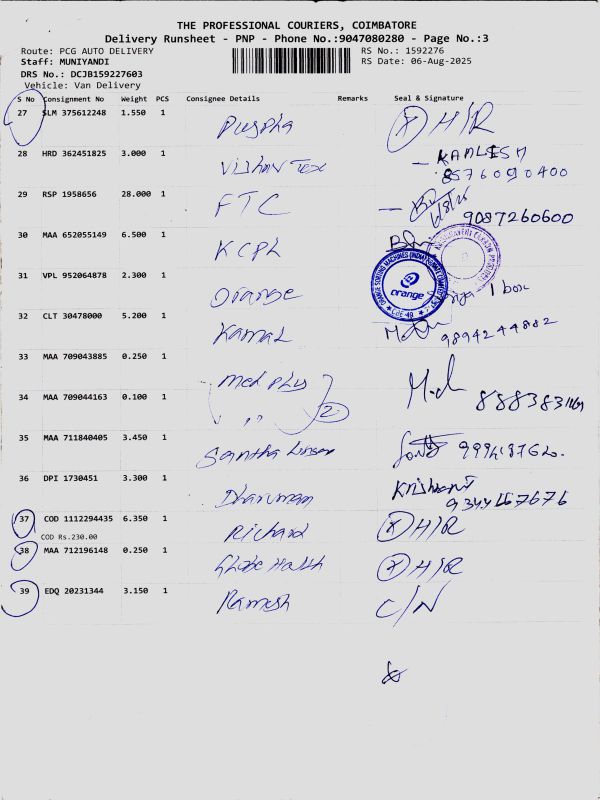 THE PROFESSIONAL COURIERS, COIMBATORE
Delivery Runsheet - PNP - Phone No.:9047080280 - Page No.:3
Route: PCG AUTO DELIVERY
RS No.: 1592276
Staff: MUNIYANDI
RS Date: 06-Aug-2025
DRS No.: DCJB159227603
Vehicle: Van Delivery
S No Consignment No Weight PCS Consignee Details Remarks Seal & Signature
27 SLM 375612248 1.550 1 Puspha (X) H/R
28 HRD 362451825 3.000 1 Vishnu Tex - KAMLESH
8576090400
29 RSP 1958656 28.000 1 FTC
9087260600
30 MAA 652055149 6.500 1 KCPL
31 VPL 952064878 2.300 1 Orange
orange
CBE-49
1 box
32 CLT 30478000 5.200 1 Kamal
9894244882
33 MAA 709043885 0.250 1 Med plus
34 MAA 709044163 0.100 1 " (2)
35 MAA 711840405 3.450 1 Santha
36 DPI 1730451 3.300 1 Dharuman
37 COD 1112294435 6.350 1 Richard (X) H/R
COD Rs.230.00
38 MAA 712196148 0.250 1 Globe Health (X) H/R
39 EDQ 20231344 3.150 1 Ramesh C/N